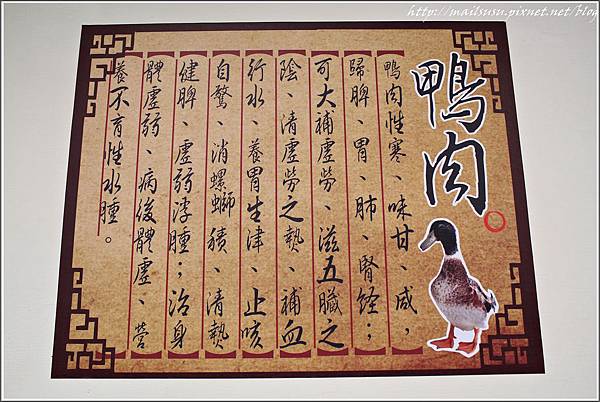 http://mailsusu.pixnet.net/blog
鴨肉
鴨肉性寒、味甘、咸,
歸脾、胃、肺、腎經;
可大補虛勞、滋五臟之
陰、清虛勞之熱、補血
行水、養胃生津、止咳
自驚、消螺螄積、清熱
健脾、虛弱浮腫;治身
體虛弱、病後體虛、營
養不育性水腫。